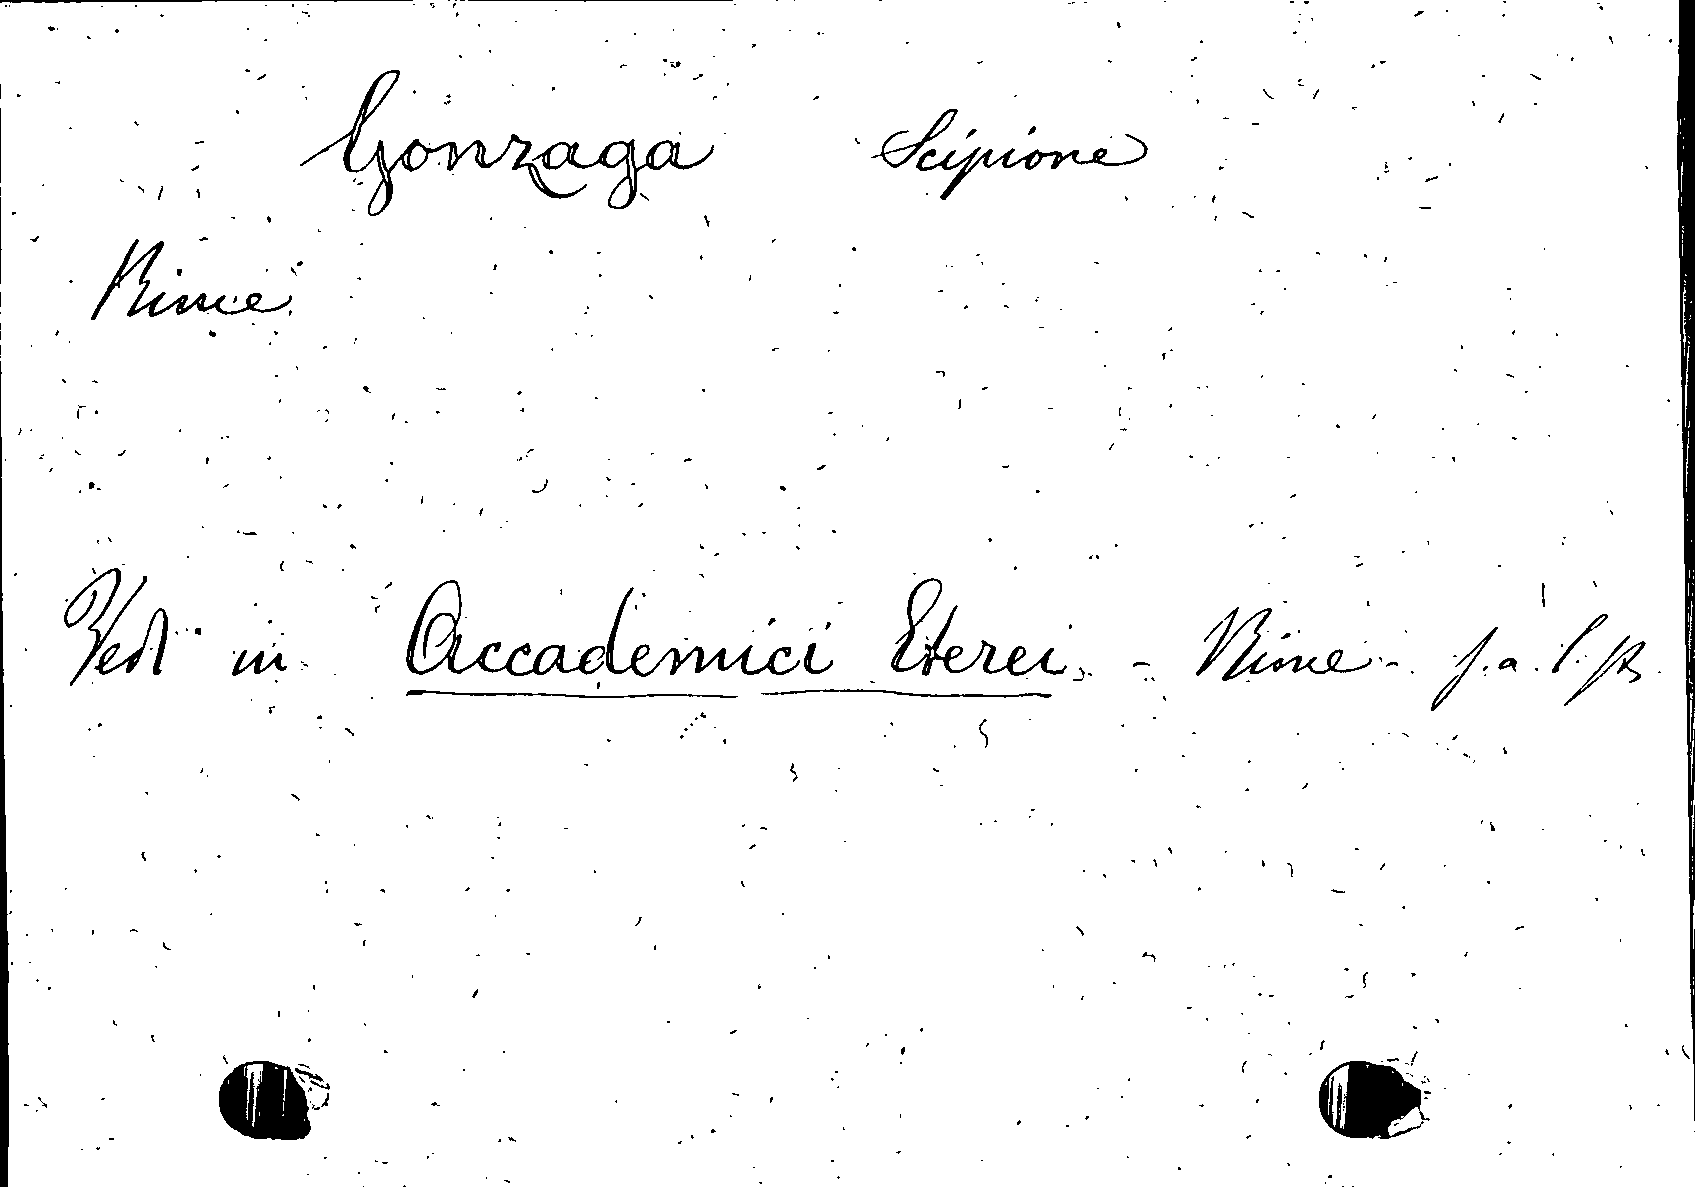 Gonzaga Scipione
Rime
Vedi in Accademici Eterei - Rime - s. a. l. st.